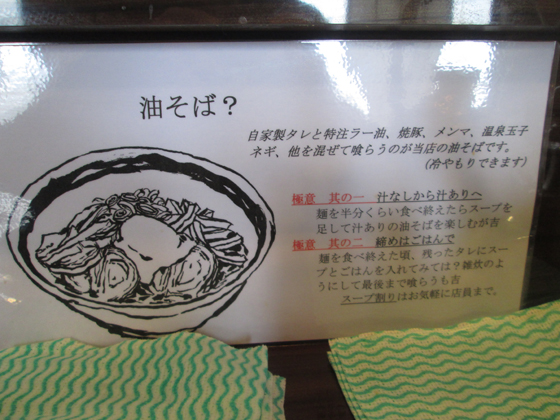 油そば？
自家製タレと特注ラー油、焼豚、メンマ、温泉玉子
ネギ、他を混ぜて喰らうのが当店の油そばです。
（冷やもりできます）
極意　其の一　汁なしから汁ありへ
麺を半分くらい食べ終えたらスープを
足して汁ありの油そばを楽しむが吉
極意　其の二　締めはごはんで
麺を食べ終えた頃、残ったタレにスー
プとごはんを入れてみては？雑炊のよ
うにして最後まで喰らうも吉
スープ割りはお気軽に店員まで。